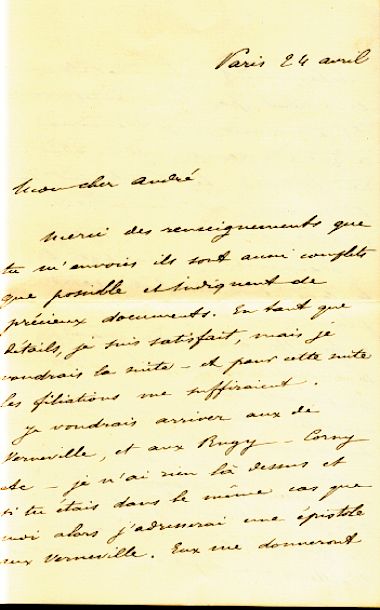 Paris 24 avril
Mon cher André
Merci des renseignements que
tu m'envoies ils sont aussi complets
que possible et indiquent de
précieux documents. En tant que
détails, je suis satisfait, mais je
voudrais la suite - et pour cette suite
les filiations me suffiraient.
Je voudrais arriver aux de
Verneville, et aux Bugy - Corny
etc - je n'ai rien là dessus et
si tu étais dans le même cas que
moi alors j'adresserai une épistole
aux Verneville. Eux me donneront